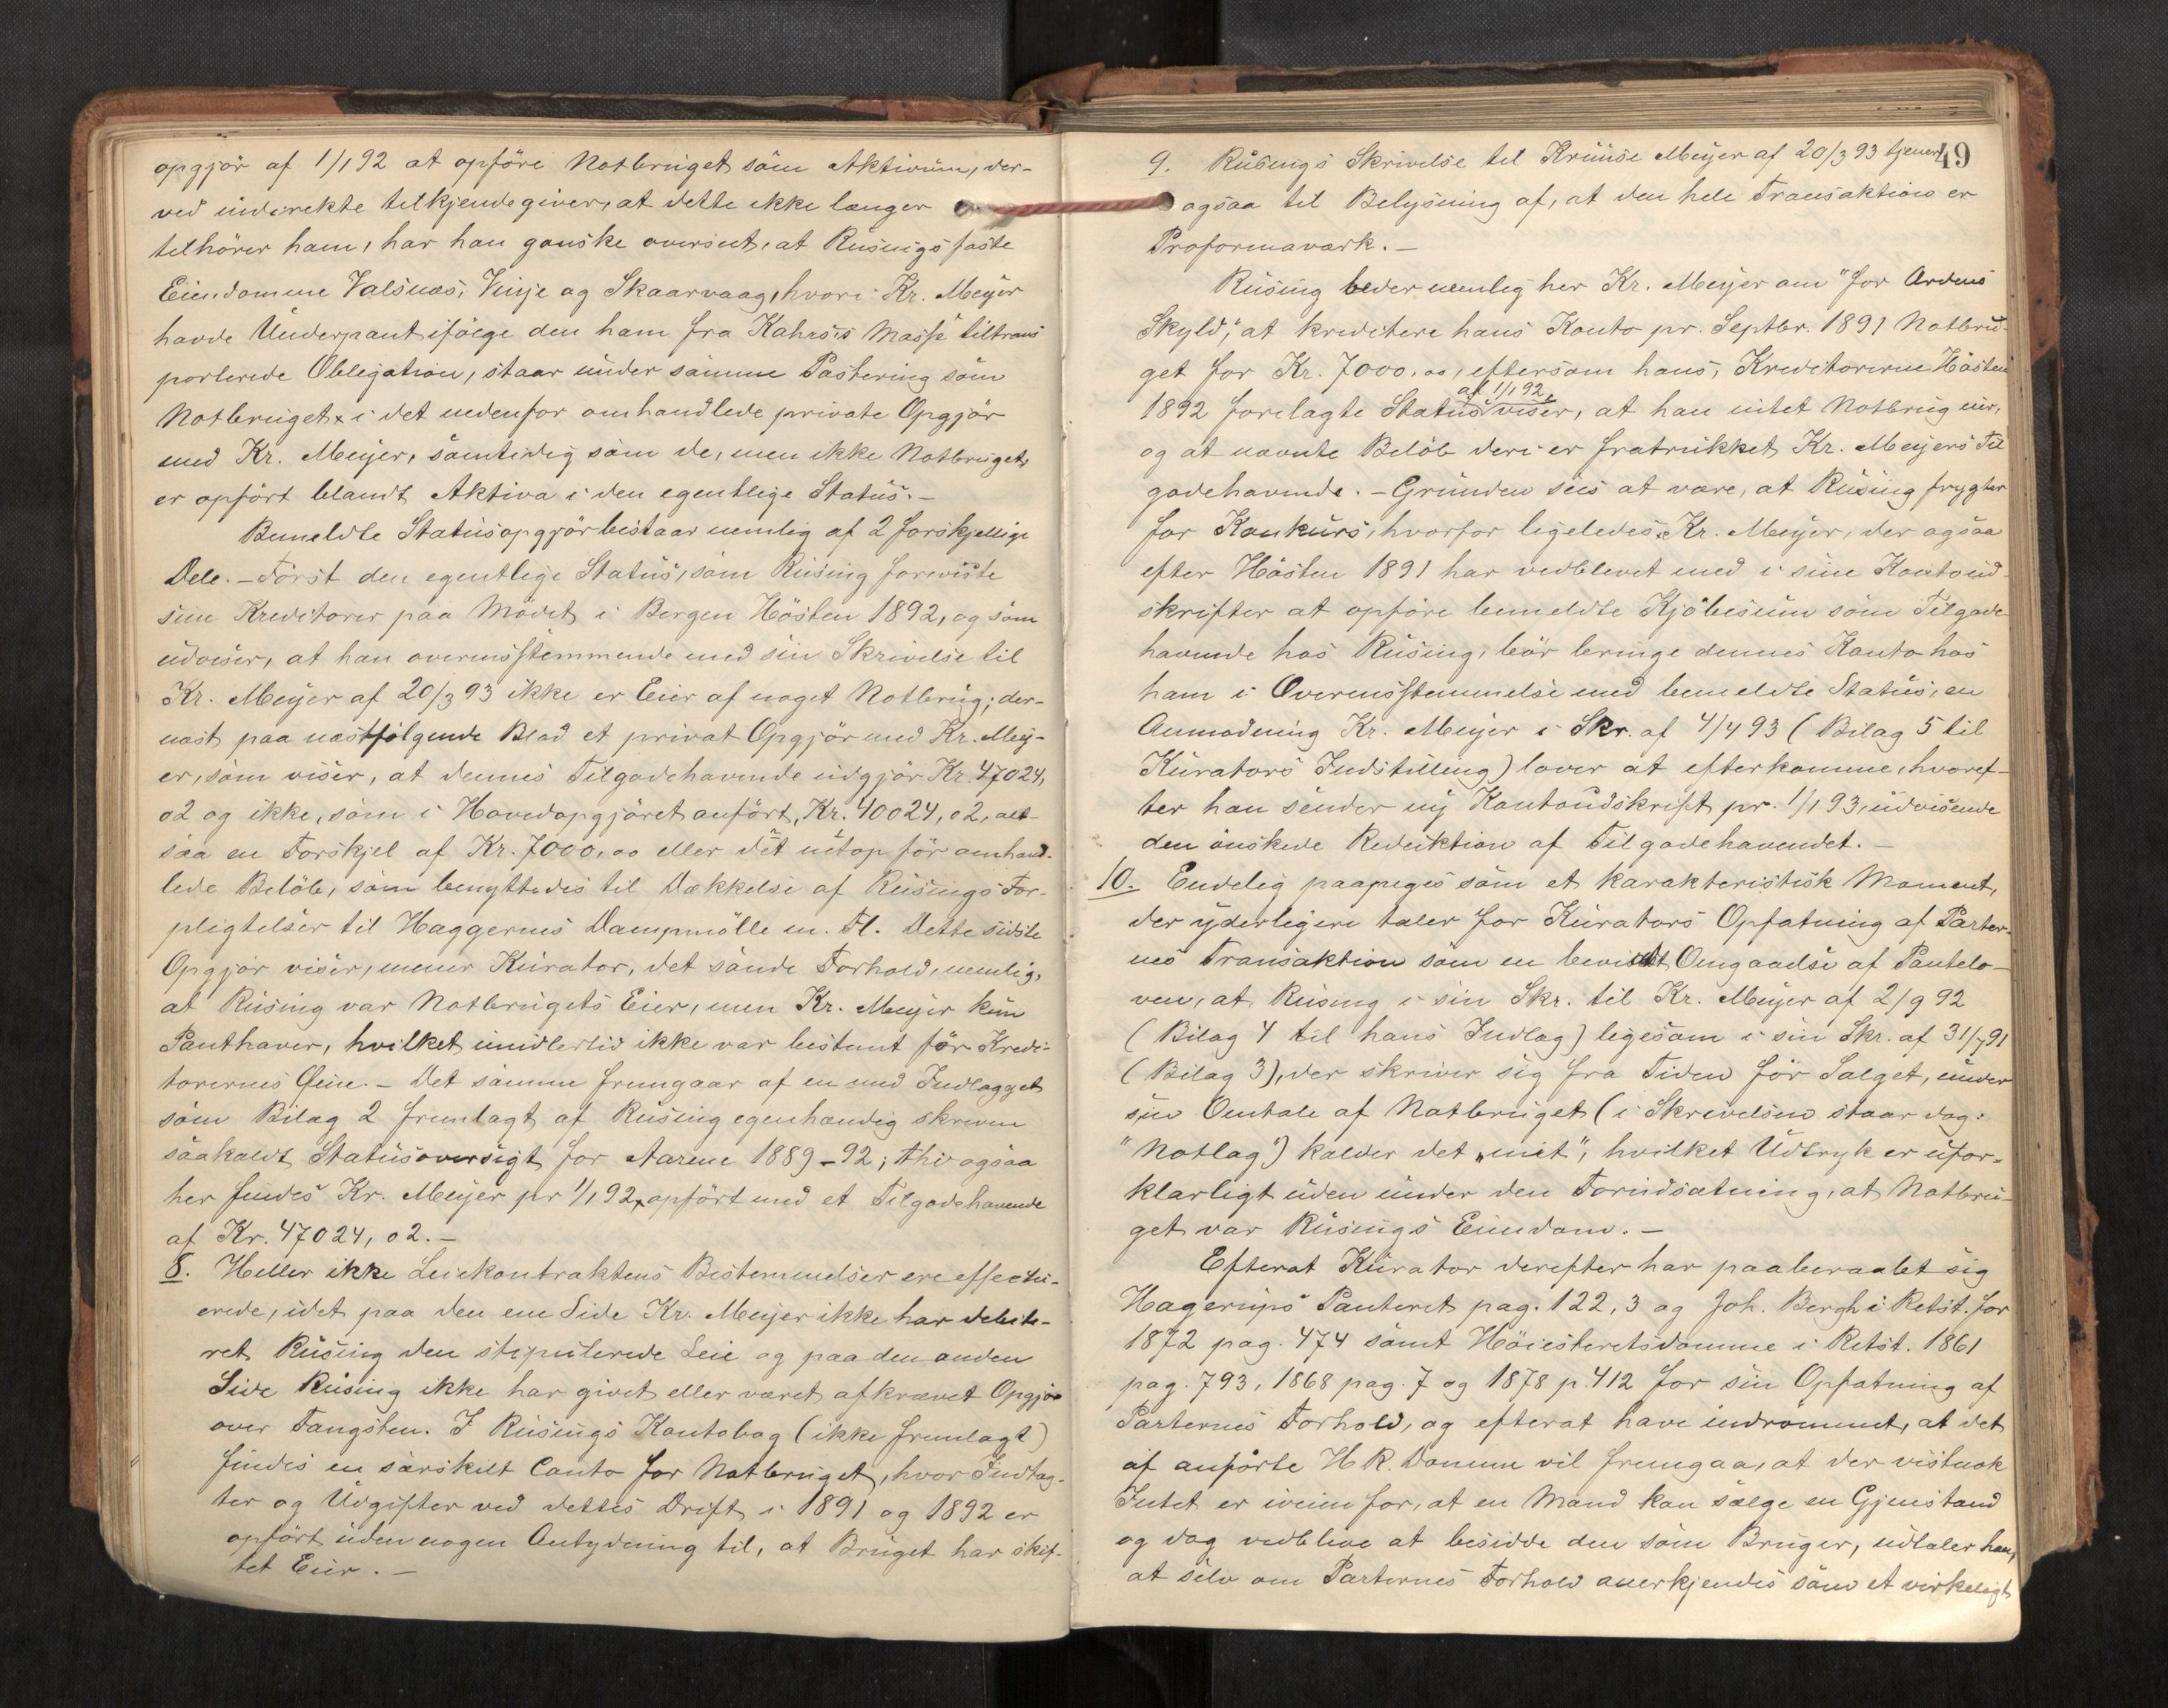 opgjør af 1/1 92 at opføre Notbruget som Aktivum, der-
ved indirekte tilkjendegiver, at dette ikke længer
tilhører ham, har han ganske overseet, at Rüsings faste
Eiendomme Valsnæs, Vinje og Skaarvaag, hvori Kr. Meyer
havde Underpant ifølge den ham fra Kahrs's Masse tiltrans
porterede Obligation, staar under samme Postering som
Notbruget i det nedenfor omhandlede private Opgjør
med Kr. Meyer, samtidig som de, men ikke Notbruget,
er opført blandt Aktiva i den egentlige Status.-
Bemeldte Statusopgjør bestaar nemlig af 2 forskjellige
Dele.- Først den egentlige Status, som Rüsing foreviste
sine Kreditorer paa Mødet i Bergen Høsten 1892, og som
udviser, at han overensstemmende med sin Skrivelse til
Kr. Meyer af 20/3 93 ikke er Eier af noget Notbrug; der-
næst paa næstfølgende Blad et privat Opgjør med Kr. Mey-
er, som viser, at dennes Tilgodehavende udgjør Kr. 47024,
02 og ikke, som i Hovedopgjøret anført, Kr. 40024,02, alt-
saa en Forskjel af Kr. 7000,00 eller det netop før omhand-
lede Beløb, som benyttedes til Dækkelse af Rüsings For-
pligtelser til Haggernes Dampmølle m. Fl. Dette sidste
Opgjør viser, mener Kurator, det sande Forhold, nemlig,
at Rüsing var Notbrugets Eier, men Kr. Meyer kun
Panthaver, hvilket imidlertid ikke var bestemt før Kredi-
torernes Øine.- Det samme fremgaar af en med Indlægget
som Bilag 2 fremlagt af Rüsing egenhændig skreven
saakaldt Statusoversigt for Aarene 1889-92; thi ogsaa
her findes Kr. Meyer pr 1/1 92 opført med et Tilgodehavende
af Kr. 47024,02.-
8. Heller ikke Leiekontraktens Bestemmelser ere effectu-
erede, idet paa den ene Side Kr. Meyer ikke har debite-
ret Rüsing den stipulerede Leie og paa den anden
Side Rüsing ikke har givet eller været afkrævet Opgjør
over Fangsten. I Rüsings Kontobog (ikke fremlagt)
findes en særskilt Conto for Notbruget, hvor Indtæg-
ter og Udgifter ved dettes Drift i 1891 og 1892 er
opført uden nogen Antydning til, at Bruget har skif-
tet Eier.-
49
9. Rüsings Skrivelse til Kruuse Meyer af 20/3 93 tjener
ogsaa til Belysning af, at den hele Transaktion er
Proformaværk.-
Rüsing beder nemlig her Kr. Meyer om "for Ordens
Skyld", at kreditere hans Konto pr. Septbr. 1891 Notbru-
get for Kr. 7000,00, eftersom hans, Kreditorerne Høsten
1892 forelagte Status af 1/1 92, viser, at han intet Notbrug eier,
og at nævnte Beløb deri er fratrukket Kr. Meyers Til
godehavende.- Grunden sees at være, at Rüsing frygter
for Konkurs, hvorfor ligeledes Kr. Meyer, der ogsaa
efter Høsten 1891 har vedblevet med i sine Kontoud-
skrifter at opføre bemeldte Kjøbesum som Tilgode-
havende hos Rüsing, bør bringe dennes Konto hos
ham i Overensstemmelse med bemeldte Status, en
Anmodning Kr. Meyer i Skr. af 4/4 93 (Bilag 5 til
Kurators Indstilling) lover at efterkomme, hvoref-
ter han sender ny Kontoudskrift pr. 1/1 93, udvisende
den ønskede Reduktion af Tilgodehavendet.-
10. Endelig paapeges som et karakteristisk Moment,
der yderligere taler for Kurators Opfatning af Parter-
nes Transaktion som en bevidst Omgaaelse af Pantelo-
ven, at Rüsing i sin Skr. til Kr. Meyer af 2/9 92
(Bilag 4 til hans Indlæg) ligesom i sin Skr. af 31/7 91
(Bilag 3), der skriver sig fra Tiden før Salget, under
sin Omtale af Notbruget (i Skrivelsen staar dog:
"Notlag") kalder det "mit", hvilket Udtryk er ufor-
klarligt uden under den Forudsætning, at Notbru-
get var Rüsings Eiendom.-
Efterat Kurator derefter har paaberaabt sig
Hagerups Panteret pag. 122, 3 og Joh. Bergh i Retst. for
1872 pag. 474 samt Høiesteretsdomme i Retst. 1861
pag. 793, 1868 pag. 7 og 1878 p. 412 for sin Opfatning af
Parternes Forhold, og efterat have indrømmet, at det
af anførte H.R. Domme vil fremgaa, at der vistnok
Intet er iveien for, at en Mand kan sælge en Gjenstand
og dog vedblive at besidde den som Bruger, udtaler han,
at selv om Parternes Forhold anerkjendes som et virkeligt